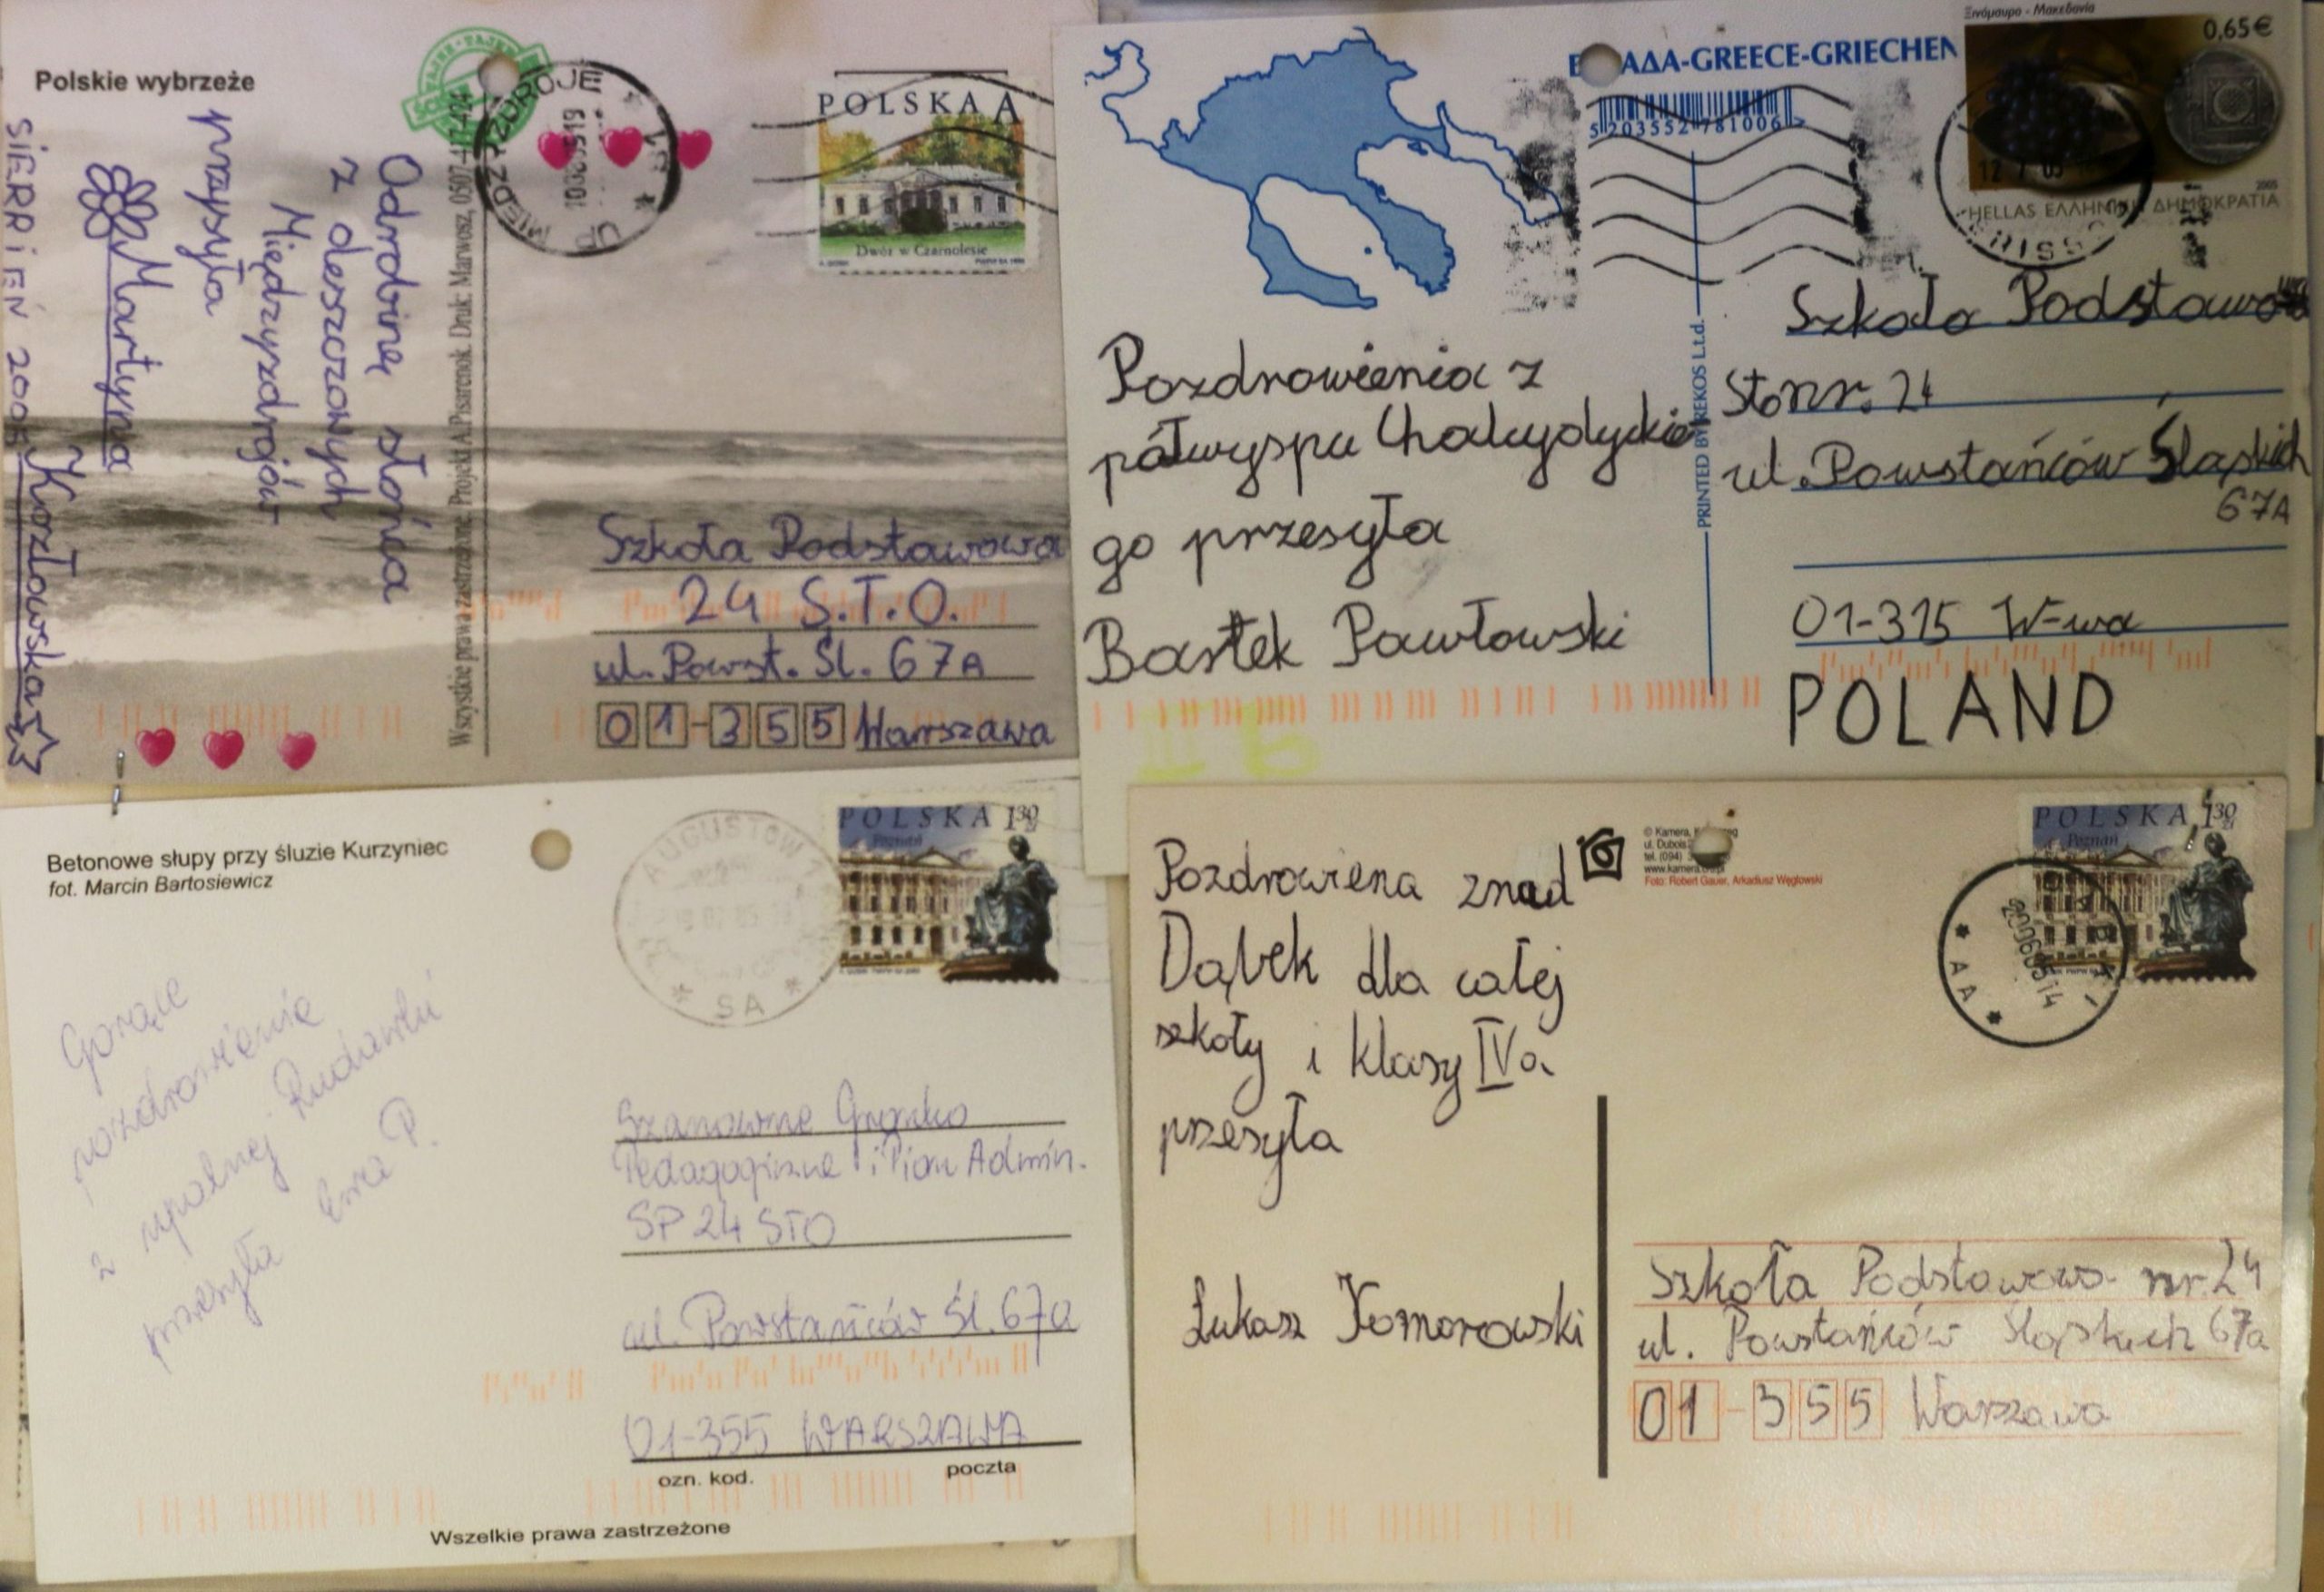 Polskie wybrzeże
Odrobinę słońca
z deszczowych
Międzyzdrojów
przesyła
Martyna
Kozłowska
SIERPIEŃ 2005
MIĘDZYZDROJE
UP
POLSKA A
Dwór w Czarnolesie
Wszystkie prawa zastrzeżone. Projekt A.Pisarenok. Druk: Marwosz, 0507-417-424
Szkoła Podstawowa
24 S.T.O.
ul. Powst. Śl. 67A
01-355 Warszawa
Ξινόμαυρο - Μακεδονία
0,65€
ΑΔΑ-GREECE-GRIECHEN
5 203552 781006
2005
HELLAS ΕΛΛΗΝΙΚΗ ΔΗΜΟΚΡΑΤΙΑ
Pozdrowienia z
półwyspu Chalcydyckie
go przesyła
Bartek Pawłowski
PRINTED BY REKOS Ltd.
Szkoła Podstawowa
Sto nr. 24
ul. Powstańców Śląskich
67A
01-315 W-wa
POLAND
Betonowe słupy przy śluzie Kurzyniec
fot. Marcin Bartosiewicz
AUGUSTÓW
SA
POLSKA 1³⁰ zł
Poznań
Gorące
pozdrowienia
z upalnej Rudawki
przesyła Ewa P.
Szanowne Grono
Pedagogiczne i Pion Admin.
SP 24 STO
ul. Powstańców Śl. 67a
01-355 WARSZAWA
ozn. kod. poczta
Wszelkie prawa zastrzeżone
Pozdrowiena znad
Dąbek dla całej
szkoły i klasy IVa
przesyła
Łukasz Komorowski
© Kamera,
ul. Dubois
tel. (094)
Foto: Robert Gauer, Arkadiusz Węglowski
POLSKA 1³⁰ zł
Poznań
AA
Szkoła Podstawowa nr. 24
ul. Powstańców Śląskich 67a
01-355 Warszawa